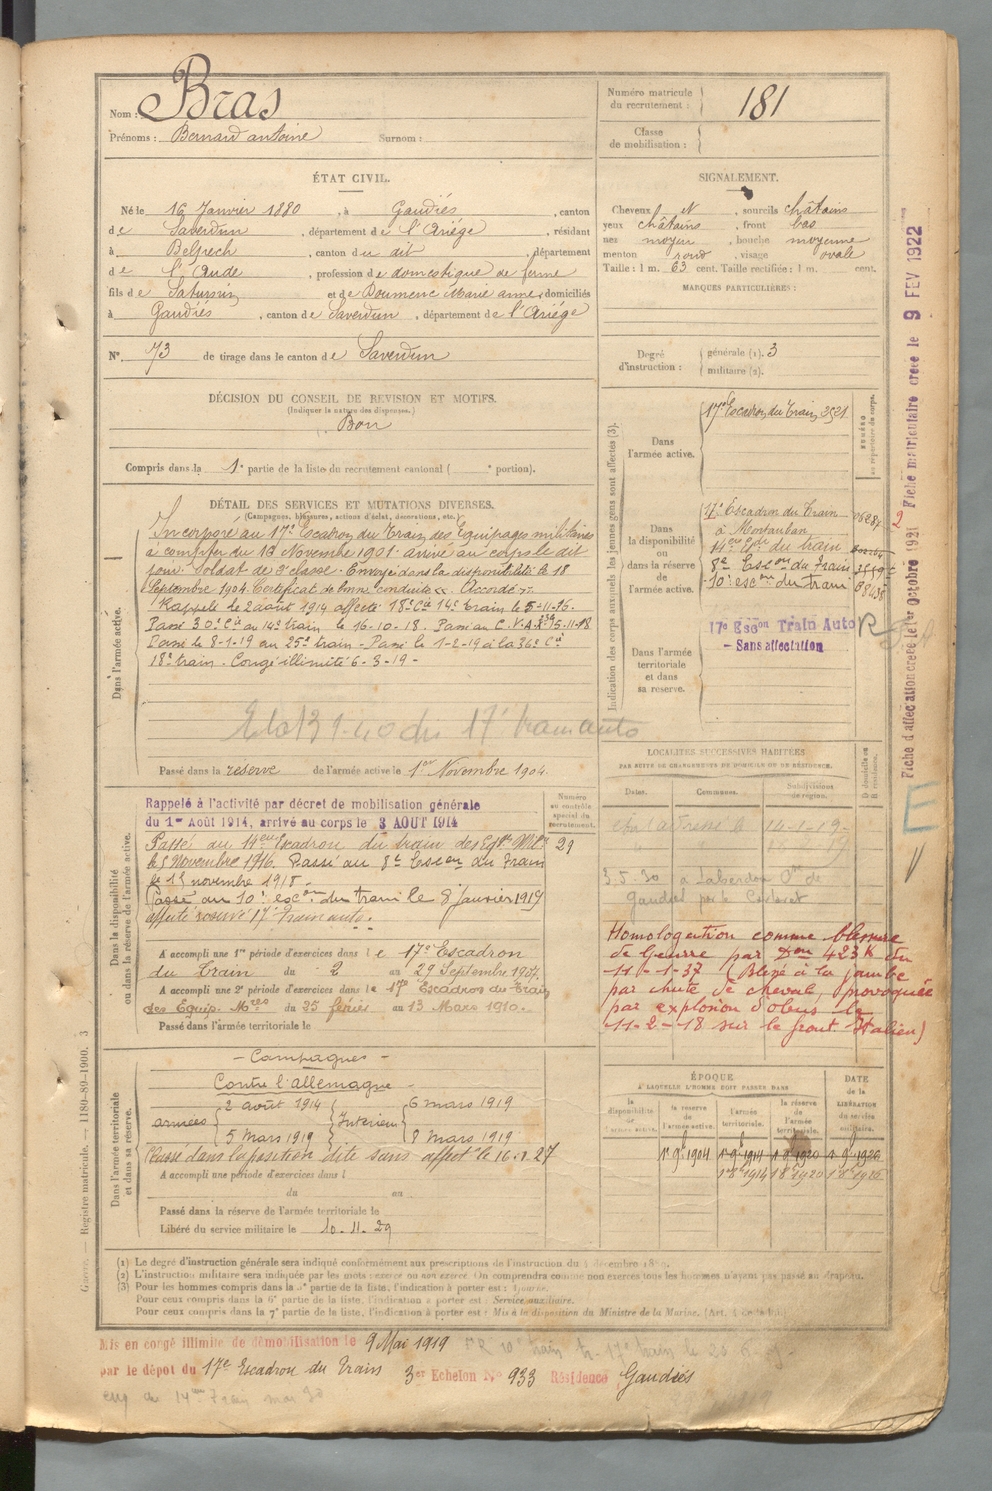 Nom : Bras
Prénoms : Bernard antoine Surnom :
Numéro matricule du recrutement : 181
Classe de mobilisation :
ÉTAT CIVIL.
Né le 16 Janvier 1880, à Gaudiés, canton
de Saverdun, département de l'Ariége, résidant
à Belpech, canton du dit, département
de l'Aude, profession de domestique de ferme
fils de Saturnin et de Doumenc Marie anne, domiciliés
à Gaudiés, canton de Saverdun, département de l'Ariége
N° 73 de tirage dans le canton de Saverdun
SIGNALEMENT.
Cheveux N, sourcils châtains
yeux châtains, front bas
nez moyen, bouche moyenne
menton rond, visage ovale
Taille : 1 m. 63 cent. Taille rectifiée : 1 m. cent.
MARQUES PARTICULIÈRES :
Degré d'instruction : générale (1). 3
militaire (2).
DÉCISION DU CONSEIL DE REVISION ET MOTIFS.
(Indiquer la nature des dispenses.)
Bon
Compris dans la 1e partie de la liste du recrutement cantonal ( e portion).
DÉTAIL DES SERVICES ET MUTATIONS DIVERSES.
(Campagnes, blessures, actions d'éclat, décorations, etc.)
Dans l'armée active.
Incorporé au 17e Escadron du Train des Equipages militaires
à compter du 16 Novembre 1901. arrivé au corps le dit
jour. Soldat de 2e classe. Envoyé dans la disponibilité le 18
Septembre 1904. Certificat de bonne conduite Accordé
Rappelé le 2 août 1914 affecté 18e Cie 14e Train le 5-11-16.
Passé 30e Cie au 14e train le 16-10-18. Passé au 15-11-18
Passé le 8-1-19 au 25e train. Passé le 1-2-19 à la 36e Cie
18e train. Congé illimité 6-3-19 -
17e train auto
Passé dans la réserve de l'armée active le 1er Novembre 1904.
Indication des corps auxquels les jeunes gens sont affectés (3).
NUMÉRO au répertoire du corps.
Dans l'armée active.
17e Escadron du Train 3521
Dans la disponibilité ou dans la réserve de l'armée active.
17e Escadron du Train
à Montauban
14eme Edr du train
8e Escon du Train
10e escon du train
Dans l'armée territoriale et dans sa réserve.
17e Escon Train Auto R
- Sans affectation
Fiche d'affectation créée le 1er octobre 1921 Fiche matriculaire créée le 9 FEV 1922
Dans la disponibilité ou dans la réserve de l'armée active.
Numéro au contrôle spécial du recrutement.
29
Rappelé à l'activité par décret de mobilisation générale
du 1er Août 1914, arrivé au corps le 3 AOUT 1914
Passé au 14eme Escadron du train des Eqges Milres
le 5 Novembre 1916. Passé au 8e Escon du Train
le 15 novembre 1918
Passé au 10e escon du train le 8 Janvier 1919
affecté réserve 17e Train auto.
A accompli une 1re période d'exercices dans le 17e Escadron
du Train du 2 au 29 Septembre 1907.
A accompli une 2e période d'exercices dans le 17e Escadron du Train
des Equip. Mres du 25 février au 13 Mars 1910.
Passé dans l'armée territoriale le
LOCALITÉS SUCCESSIVES HABITÉES
PAR SUITE DE CHANGEMENTS DE DOMICILE OU DE RÉSIDENCE.
Dates. Communes. Subdivisions de région. D domicile ou R résidence.
3.5.30
Homologation comme blessure
de Guerre par Don 423 K du
11-1-37 (Blessé à la jambe
par chute de cheval, provoquée
par explosion d'obus le
11-2-18 sur le front Italien)
Dans l'armée territoriale et dans sa réserve.
- Campagnes -
Contre l'allemagne -
armées 2 août 1914
5 mars 1919
Interieur 6 mars 1919
8 mars 1919
Classé dans la position dite sans affect le 16.1.27
A accompli une période d'exercices dans l
du au
Passé dans la réserve de l'armée territoriale le
Libéré du service militaire le 10-11-29
ÉPOQUE
A LAQUELLE L'HOMME DOIT PASSER DANS
la disponibilité de l'armée active.
la réserve de l'armée active.
l'armée territoriale.
la réserve de l'armée territoriale.
DATE de la LIBÉRATION du service militaire.
1er 9bre 1904 1er 9bre 1914 1er 9bre 1920 1er 9bre 1926
1er 8bre 1914 1er 8bre 1920 1er 8bre 1926
(1) Le degré d'instruction générale sera indiqué conformément aux prescriptions de l'instruction du 4 décembre 1889.
(2) L'instruction militaire sera indiquée par les mots exercé ou non exercé. On comprendra comme non exercés tous les hommes n'ayant pas passé au drapeau.
(3) Pour les hommes compris dans la 5e partie de la liste, l'indication à porter est : Ajourné.
Pour ceux compris dans la 6e partie de la liste, l'indication à porter est : Service auxiliaire.
Pour ceux compris dans la 7e partie de la liste, l'indication à porter est : Mis à la disposition du Ministre de la Marine.
Guerre. — Registre matricule. — 1180-89-1900. 3
Mis en congé illimité de démobilisation le 9 Mai 1919
par le dépôt du 17e Escadron du Train 3er Echelon No 933 Résidence Gaudiés